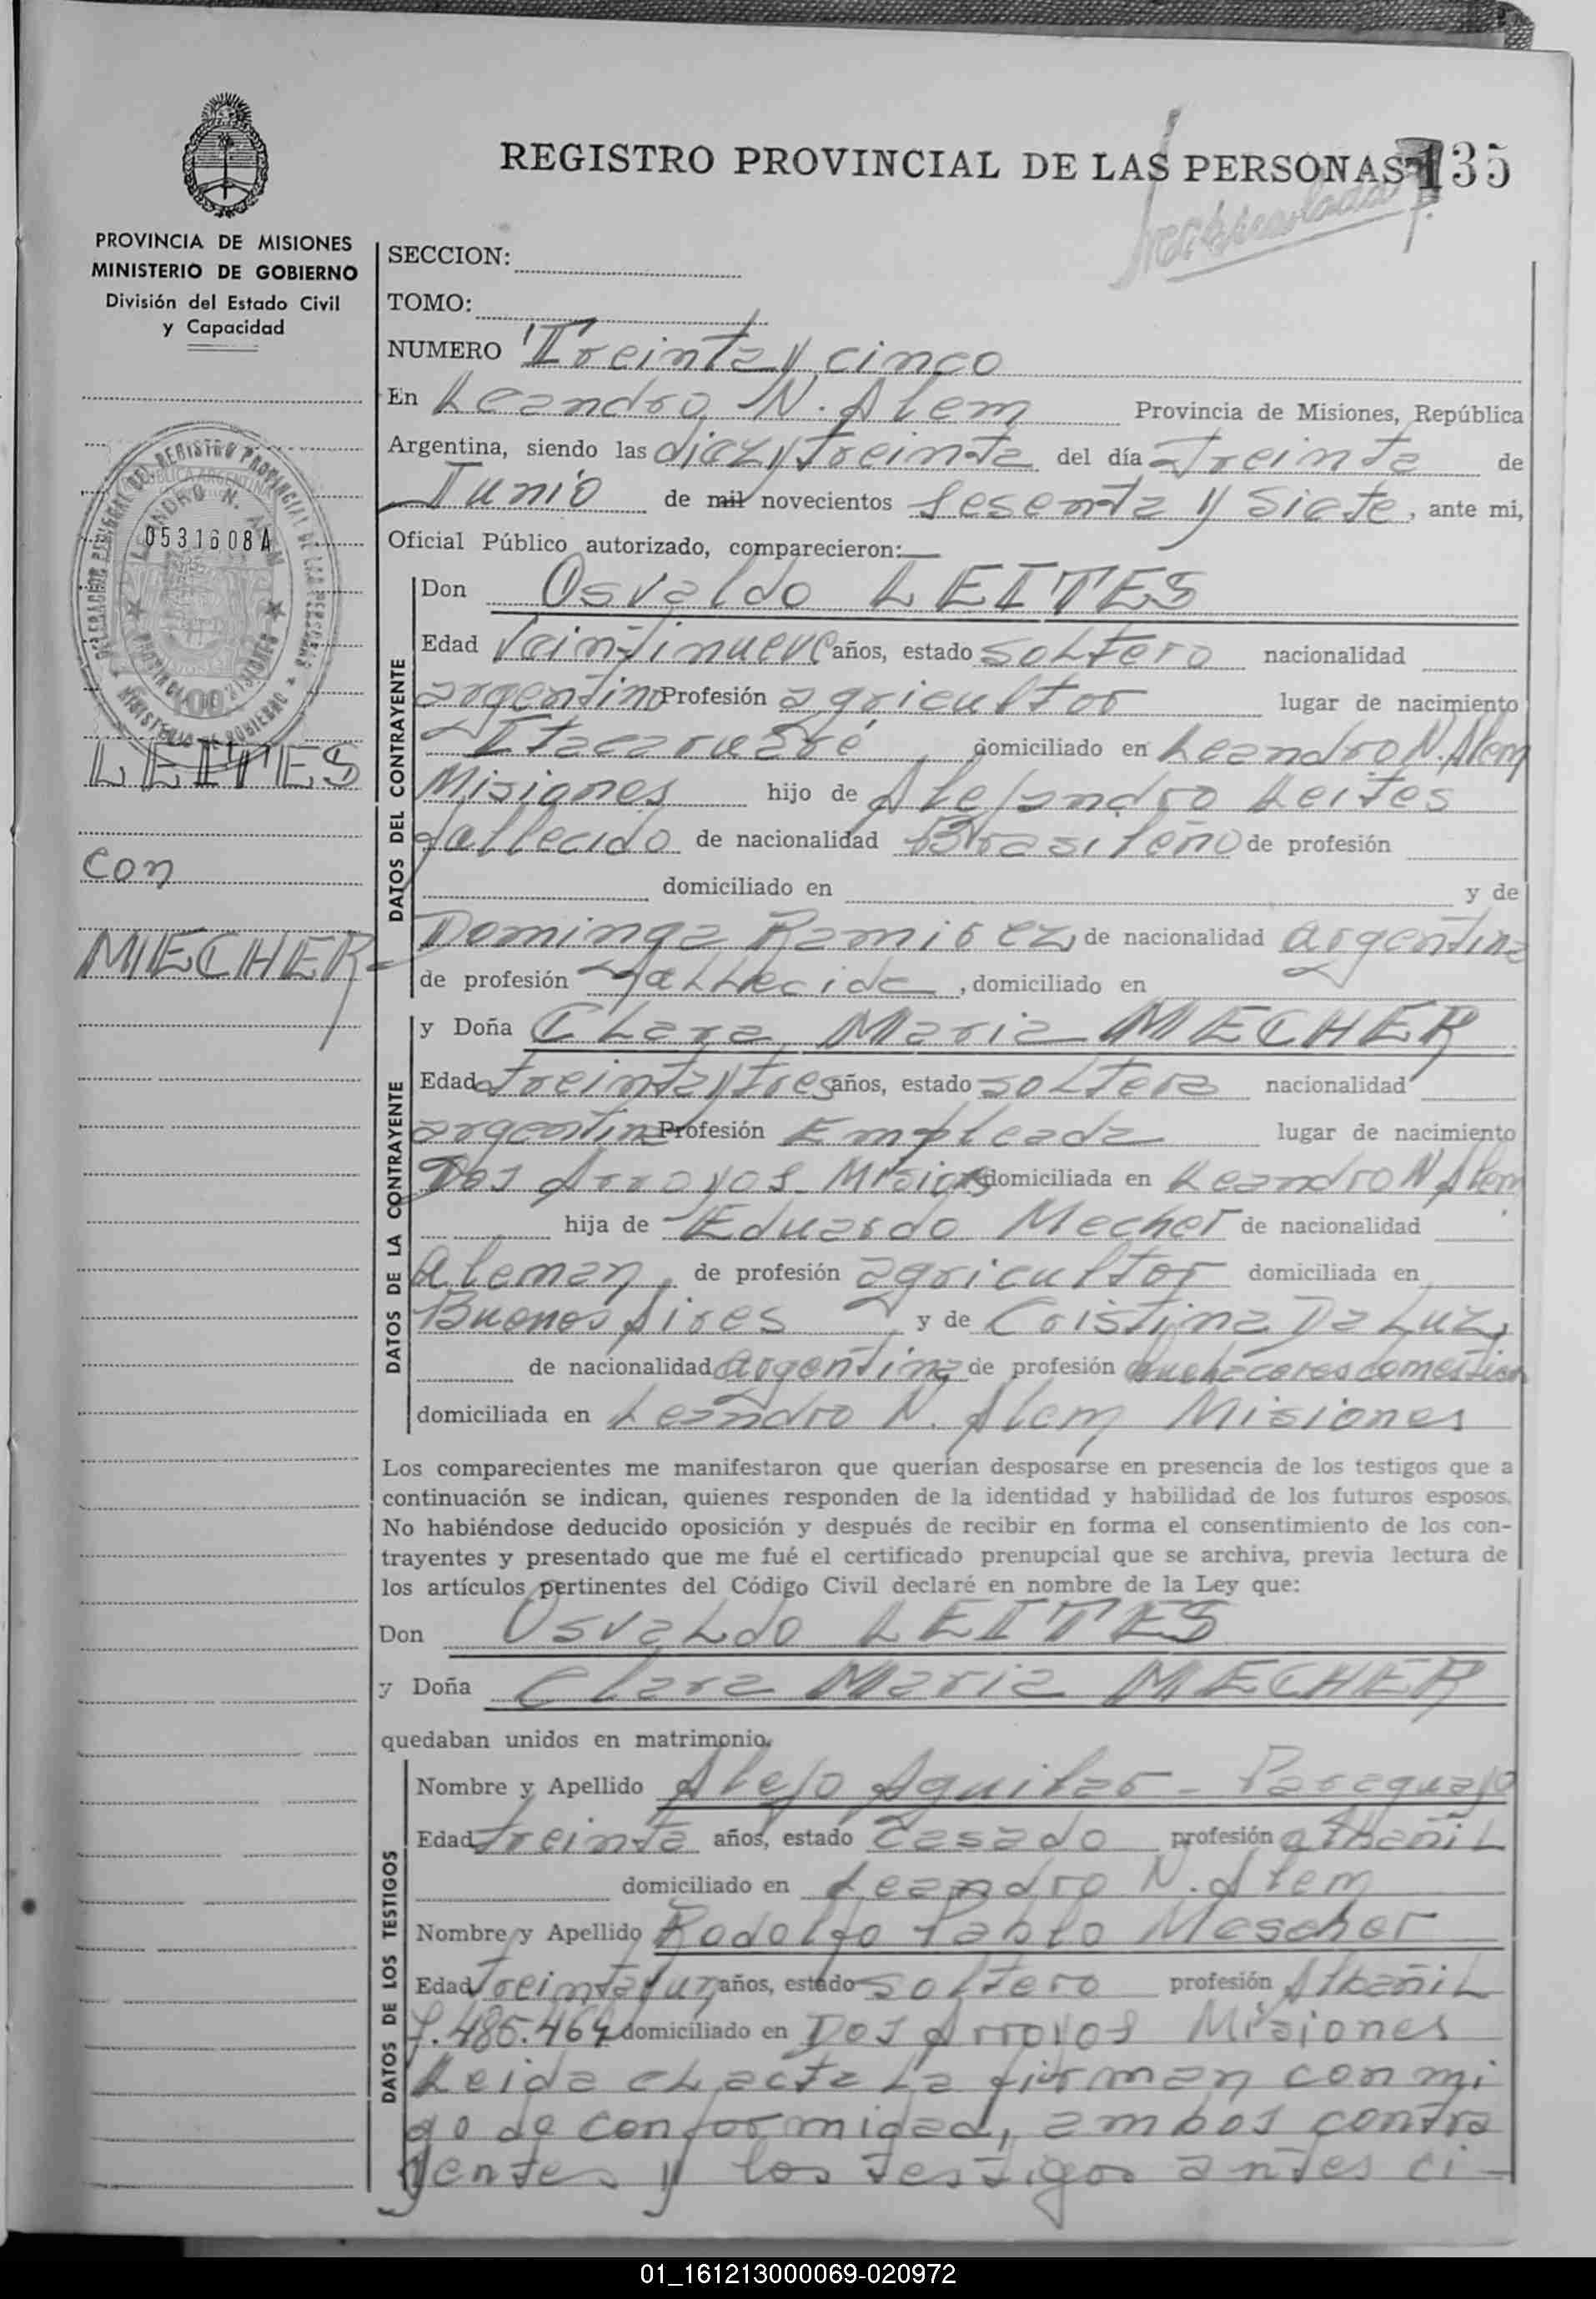 REGISTRO PROVINCIAL DE LAS PERSONAS 135
PROVINCIA DE MISIONES
MINISTERIO DE GOBIERNO
División del Estado Civil
y Capacidad
0531608A
LEITES
con
MECHER
SECCION:
TOMO:
NUMERO Treinta y cinco
En Leandro N. Alem Provincia de Misiones, República
Argentina, siendo las diez y treinta del día Treinta de
Junio de mil novecientos sesenta y siete, ante mi,
Oficial Público autorizado, comparecieron:
DATOS DEL CONTRAYENTE
Don Osvaldo LEITES
Edad Veintinueve años, estado soltero nacionalidad
argentino Profesión agricultor lugar de nacimiento
Itacaruaré domiciliado en Leandro N. Alem
Misiones hijo de Alejandro Leites
fallecido de nacionalidad Brasileño de profesión
domiciliado en y de
Dominga Ramirez, de nacionalidad argentina
de profesión fallecida, domiciliado en
DATOS DE LA CONTRAYENTE
y Doña Clara Maria MECHER
Edad treinta y tres años, estado soltera nacionalidad
argentina Profesión Empleada lugar de nacimiento
Dos Arroyos Misiones domiciliada en Leandro N Alem
hija de Eduardo Mecher de nacionalidad
Aleman, de profesión agricultor domiciliada en
Buenos Aires y de Cristina Da Luz,
de nacionalidad argentina de profesión domestico
domiciliada en Leandro N. Alem Misiones
Los comparecientes me manifestaron que querían desposarse en presencia de los testigos que a
continuación se indican, quienes responden de la identidad y habilidad de los futuros esposos.
No habiéndose deducido oposición y después de recibir en forma el consentimiento de los con-
trayentes y presentado que me fué el certificado prenupcial que se archiva, previa lectura de
los artículos pertinentes del Código Civil declaré en nombre de la Ley que:
Don Osvaldo LEITES
y Doña Clara Maria MECHER
quedaban unidos en matrimonio.
DATOS DE LOS TESTIGOS
Nombre y Apellido Alejo Aguilar - Paraguayo
Edad treinta años, estado casado profesión albañil
domiciliado en Leandro N. Alem
Nombre y Apellido Rodolfo Pablo Mescher
Edad treinta y un años, estado soltero profesión Albañil
7.485.464 domiciliado en Dos Arroyos Misiones
Leida el acta la firman conmi
go de conformidad, ambos contra
yentes y los testigos antes ci-
01_161213000069-020972